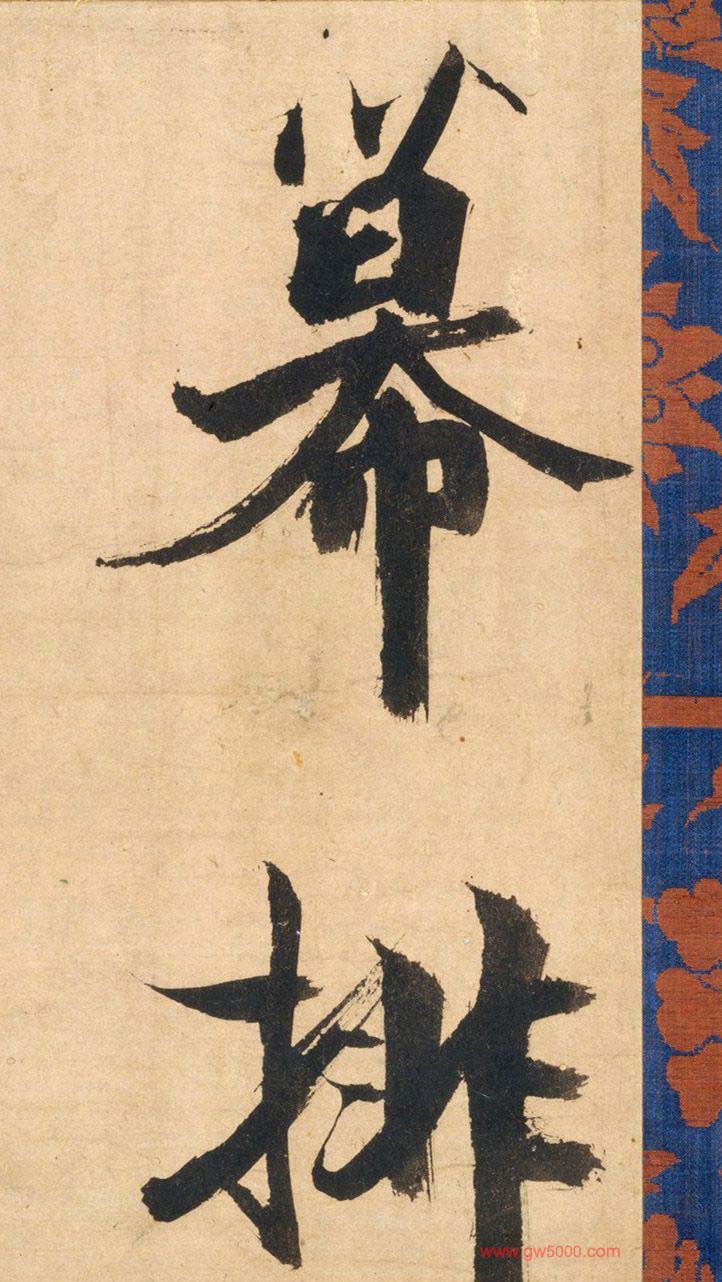 幕
排
www.gw5000.com